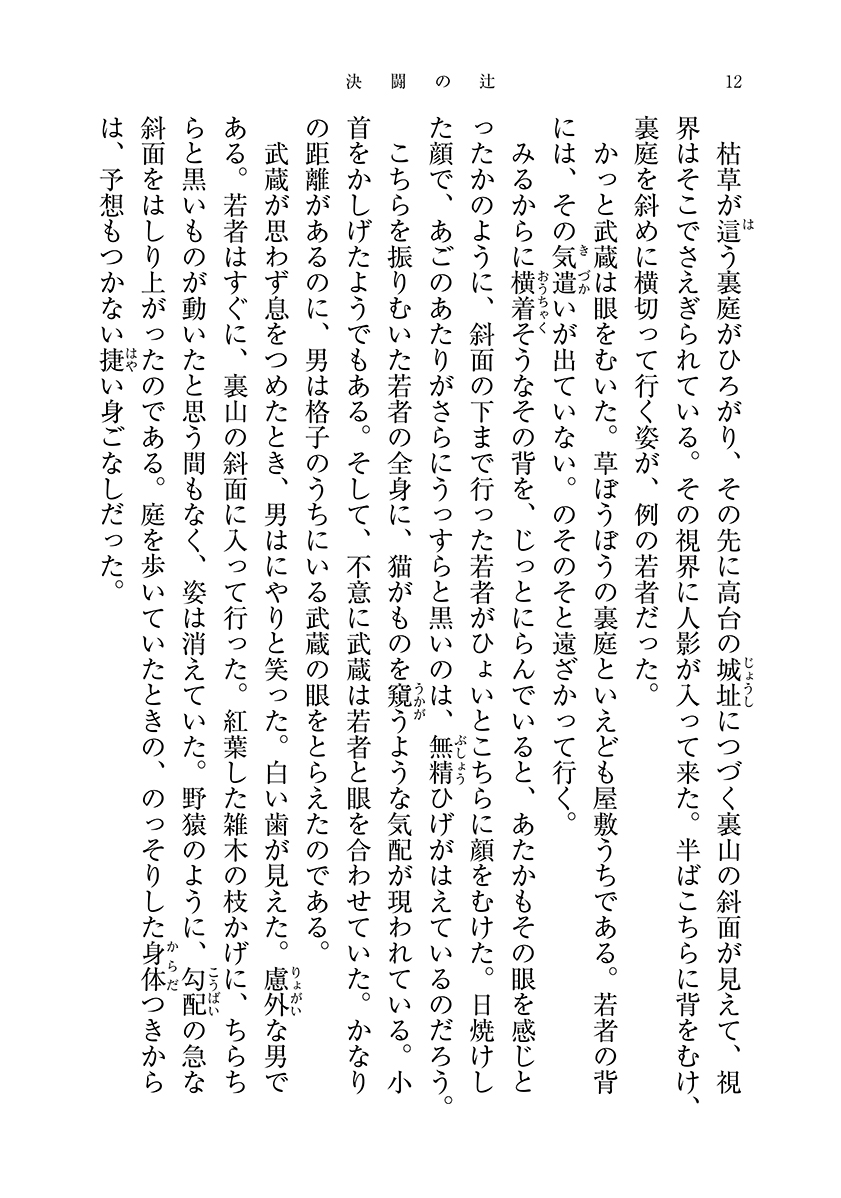 決闘の辻
12
枯草が這う裏庭がひろがり、その先に高台の城址につづく裏山の斜面が見えて、視
界はそこでさえぎられている。その視界に人影が入って来た。半ばこちらに背をむけ、
裏庭を斜めに横切って行く姿が、例の若者だった。
かっと武蔵は眼をむいた。草ぼうぼうの裏庭といえども屋敷うちである。若者の背
には、その気遣いが出ていない。のそのそと遠ざかって行く。
みるからに横着そうなその背を、じっとにらんでいると、あたかもその眼を感じと
ったかのように、斜面の下まで行った若者がひょいとこちらに顔をむけた。日焼けし
た顔で、あごのあたりがさらにうっすらと黒いのは、無精ひげがはえているのだろう。
こちらを振りむいた若者の全身に、猫がものを窺うような気配が現われている。小
首をかしげたようでもある。そして、不意に武蔵は若者と眼を合わせていた。かなり
の距離があるのに、男は格子のうちにいる武蔵の眼をとらえたのである。
武蔵が思わず息をつめたとき、男はにやりと笑った。白い歯が見えた。慮外な男で
ある。若者はすぐに、裏山の斜面に入って行った。紅葉した雑木の枝かげに、ちらち
らと黒いものが動いたと思う間もなく、姿は消えていた。野猿のように、勾配の急な
斜面をはしり上がったのである。庭を歩いていたときの、のっそりした身体つきから
は、予想もつかない捷い身ごなしだった。
は
じょうし
きづか
おうちゃく
ぶしょう
うかが
りょがい
こうばい
からだ
はや